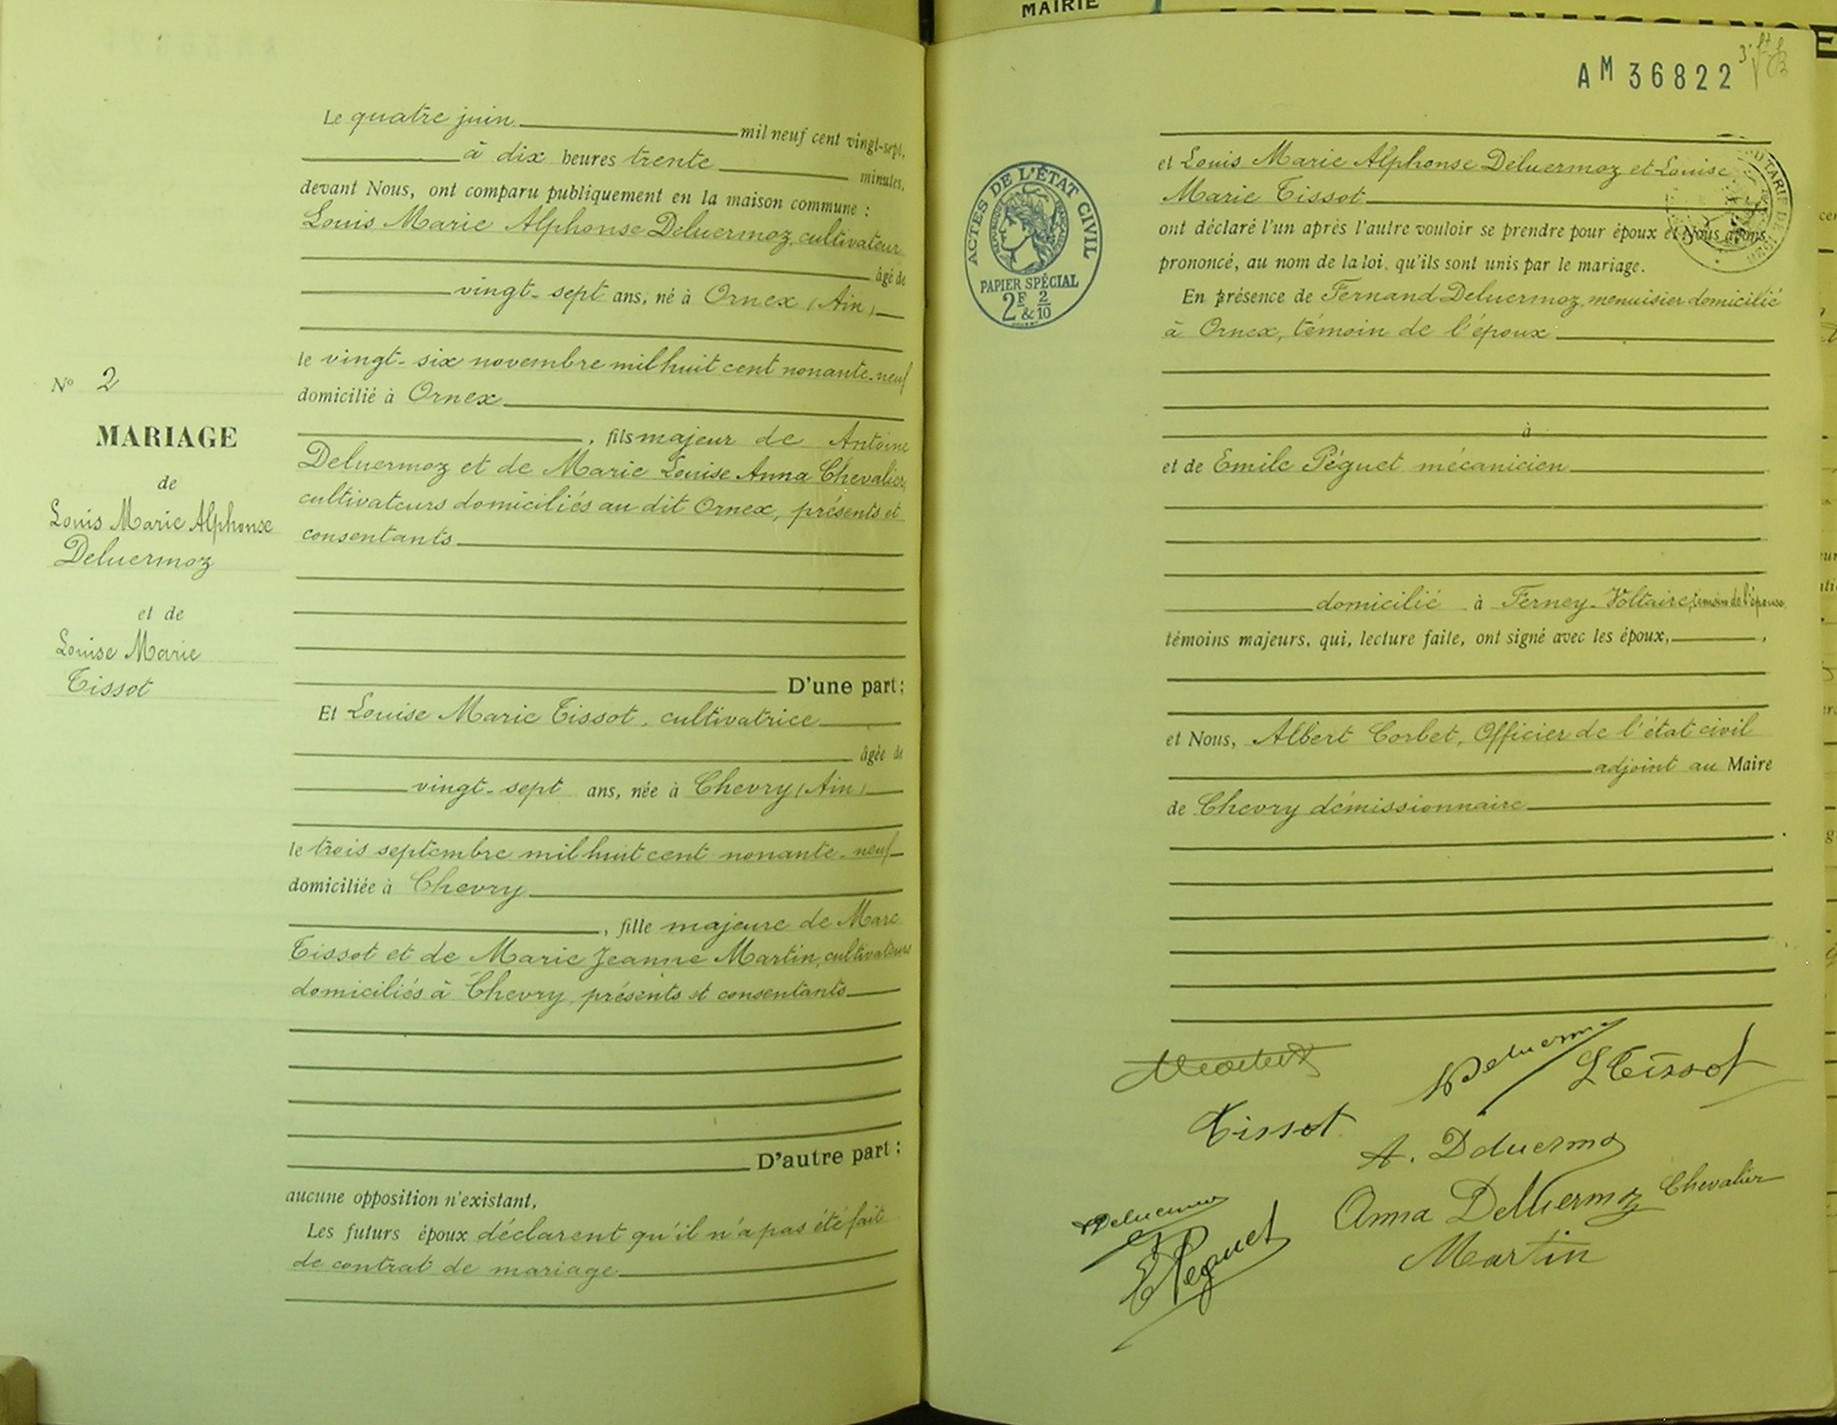 MAIRIE
AM 36822
Le quatre juin mil neuf cent vingt-sept,
à dix heures trente minutes,
devant Nous, ont comparu publiquement en la maison commune :
Louis Marie Alphonse Deluermoz, cultivateur
âgé de
vingt-sept ans, né à Ornex (Ain)
le vingt-six novembre mil huit cent nonante-neuf
domicilié à Ornex
, fils majeur de Antoine
Deluermoz et de Marie Louise Anna Chevalier,
cultivateurs domiciliés au dit Ornex, présents et
consentants
D'une part ;
Et Louise Marie Tissot, cultivatrice
âgée de
vingt-sept ans, née à Chevry (Ain)
le trois septembre mil huit cent nonante-neuf
domiciliée à Chevry
, fille majeure de Marc
Tissot et de Marie Jeanne Martin, cultivateurs
domiciliés à Chevry, présents et consentants
D'autre part ;
aucune opposition n'existant,
Les futurs époux déclarent qu'il n'a pas été fait
de contrat de mariage
N° 2
MARIAGE
de
Louis Marie Alphonse
Deluermoz
et de
Louise Marie
Tissot
et Louis Marie Alphonse Deluermoz et Louise
Marie Tissot
ont déclaré l'un après l'autre vouloir se prendre pour époux et Nous avons
prononcé, au nom de la loi, qu'ils sont unis par le mariage.
En présence de Fernand Deluermoz, menuisier domicilié
à Ornex, témoin de l'époux
à
et de Emile Péguet mécanicien
domicilié à Ferney-Voltaire, témoin de l'épouse
témoins majeurs, qui, lecture faite, ont signé avec les époux, ,
et Nous, Albert Corbet, Officier de l'état civil
adjoint au Maire
de Chevry démissionnaire
ACTES DE L'ÉTAT CIVIL
PAPIER SPÉCIAL
2F & 2/10
L Tissot
Tissot
A. Deluermoz
Anna Deluermoz Chevalier
Martin
E Péguet